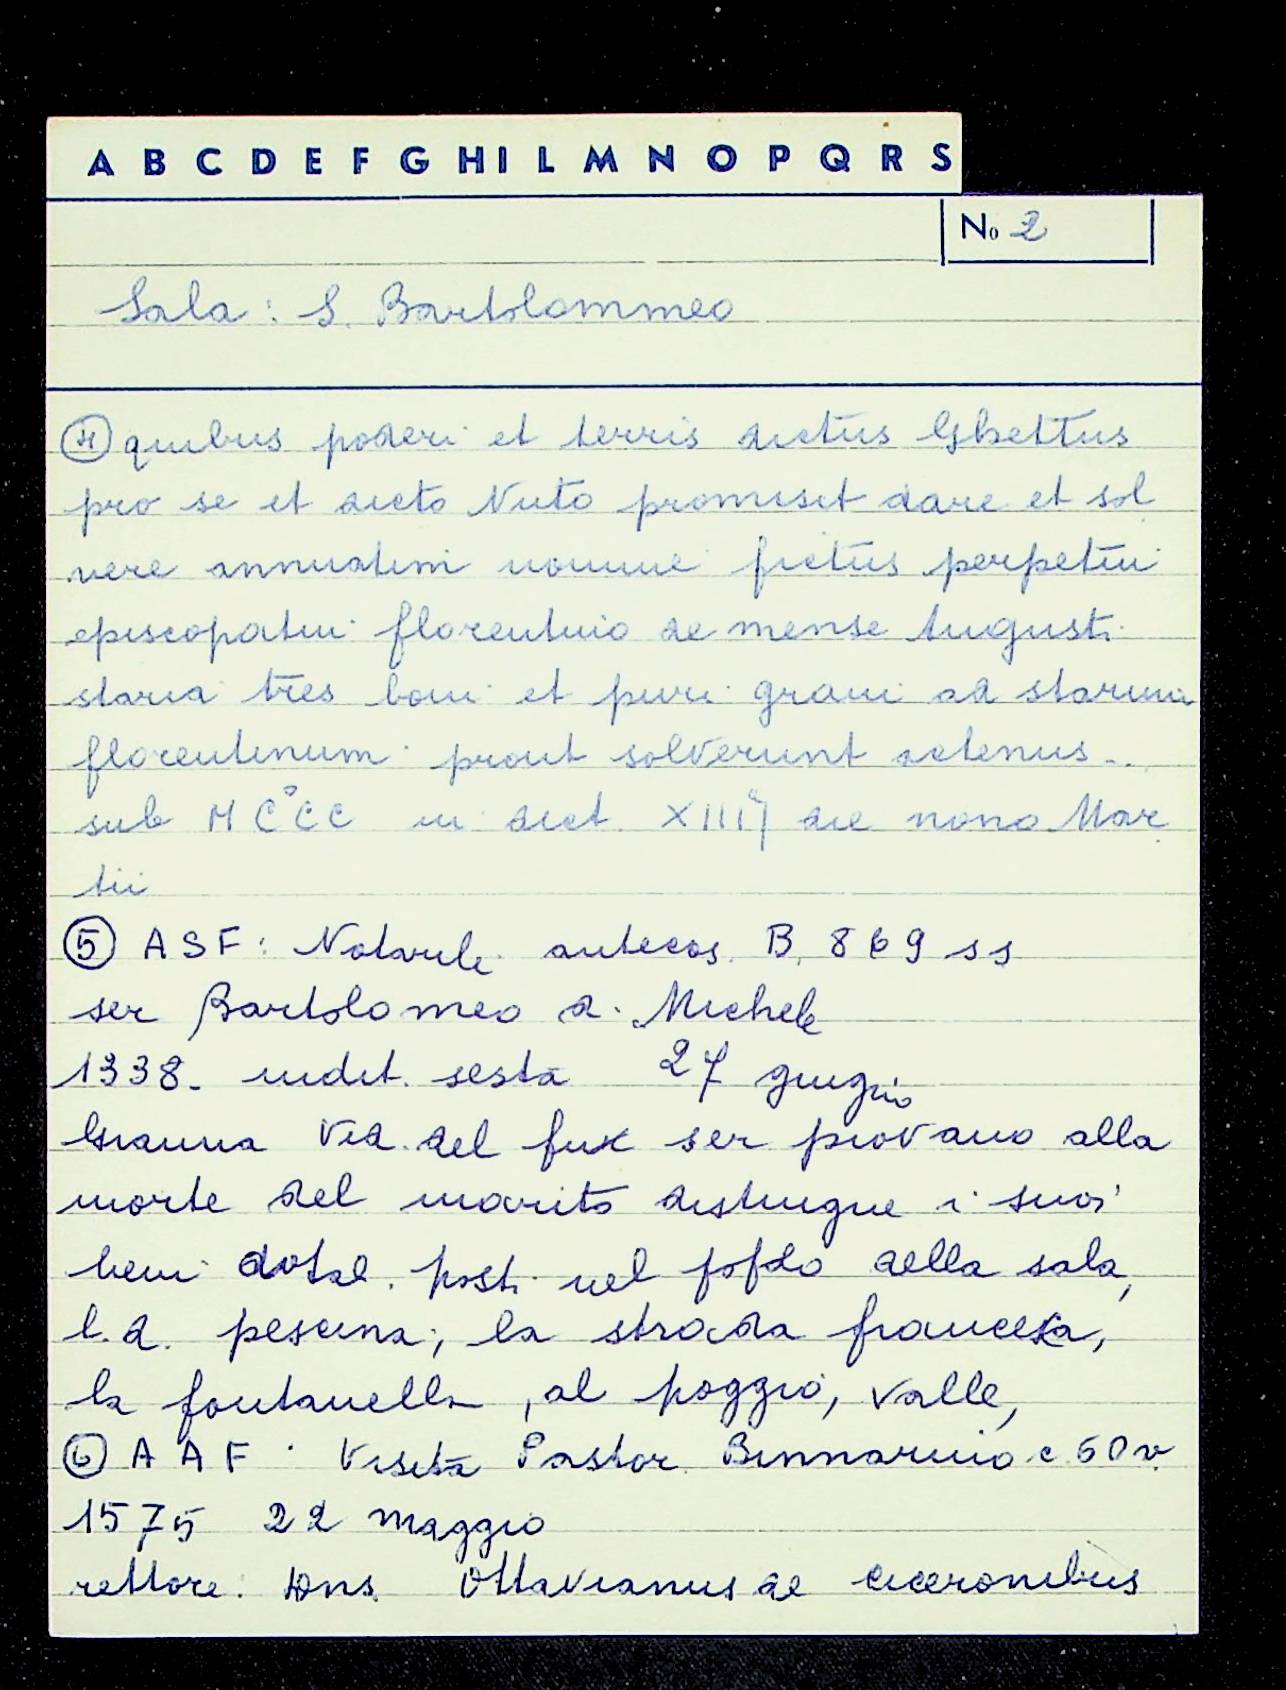 A B C D E F G H I L M N O P Q R S
No 2
Sala: S. Bartolommeo
④ quibus poderi et terris dictus Ghettus
pro se et dicto Nuto promisit dare et sol
vere annuatim nomine fictus perpetui
episcopatui florentino de mense Augusti
staria tres boni et puri grani ad starium
florentinum prout solverunt actenus..
sub MC°CC in dict. XIIIJ die nono Mar
tii
⑤ ASF: Notarile antecos. B. 869 ss
ser Bartolomeo d. Michele
1338. indit. sesta 27 giugno
Gianna Ved. del fu ser piovano alla
morte del marito distingue i suoi
beni dotal. posti nel popolo della sala,
l.d. pescina; la strada francesca,
la fontanella, al poggio, valle,
⑥ AAF. Visita Pastor. Binnarino c 60 v
1575 22 maggio
rettore: Dns. Ottavianus de ciceronibus